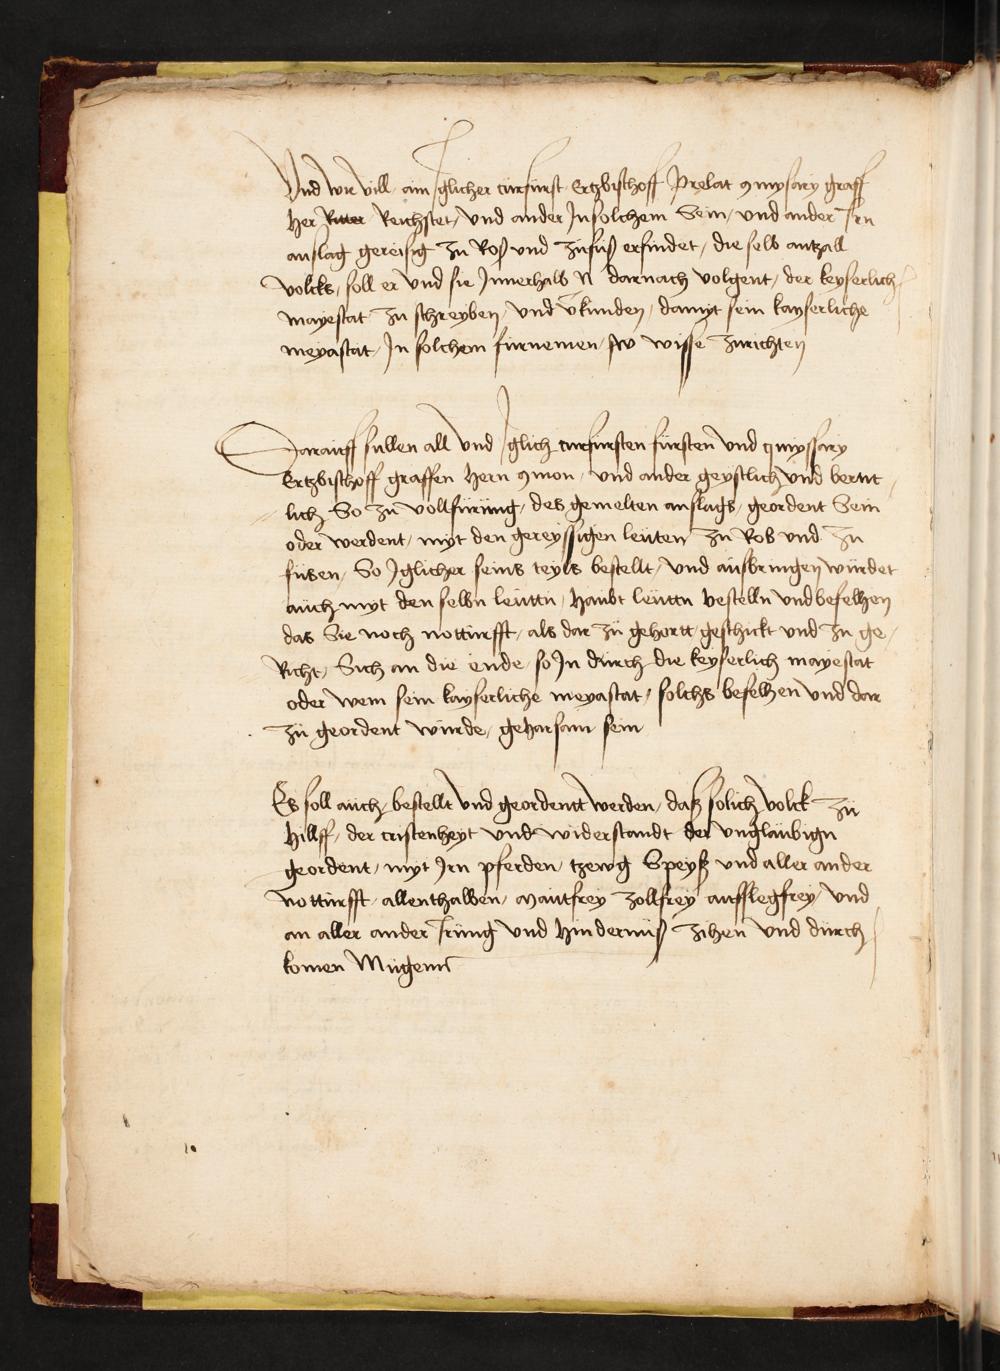 Und wie vill ain Iglicher curfurst Ertzbischoff Prelat 9mysary graff
Her Ritter Reichstet, und ander In solchem Sein, und ander Irn
anslag gereisig zu Roß und zufuß erfindet, die selb antzall
volcks, soll er und sie Innerhalb N darnach volgent, der keyserlich
mayestat zu schreyben, und v̄kunden, damyt sein kayserliche
meyastat, In solchem furnemen, sich wisse zurichten
Darauff sullen all und Iglich curfursten fursten und 9myssary
Ertzbischoff graffen Hern 9mon, und ander geystlich und werntt
lich So zu vollfurung, des gemelten anslags, geordent Sein
oder werdent, myt den gereyssigen leuten zu Ros und zu
fusen, So Iglicher seins teyls bestellt, und ausbringen wurdet
auch myt den selbn leuttn, Haubt leuttn bestelln und befelhen
das Sie noch notturfft, als dar zu gehortt geschickt und zu ge,
Richt, Sich an die ende, so In durch die keyserlich mayestat
oder wem sein kayserliche meyastat, solchs befelhen und dar
zu geordent wurde, geharsam sein
Es soll auch, bestellt und geordentt werden, daß solich volck zu
Hillff, der cristenheyt und widerstandt der unglaubign
geordent, myt Irn pferden, tzewg Speyß und aller ander
notturfft, allenthalben, Mautfrey zollfrey auffslegfrey, und
an aller ander Irung und Hindernuß zihen und durch
komen Mugenn